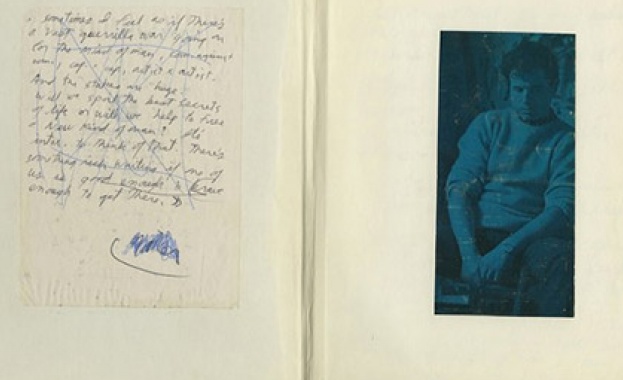 sometimes I feel as if there's
a vast guerrilla war going on
for the mind of man, communist
cop + cop, artist + artist.
And the stakes are huge.
Will we spoil the best secrets
of life or will we help to free
a new kind of man? It's
to think of that. There's
something each writing if one of
us is good enough & brave
enough to get there.